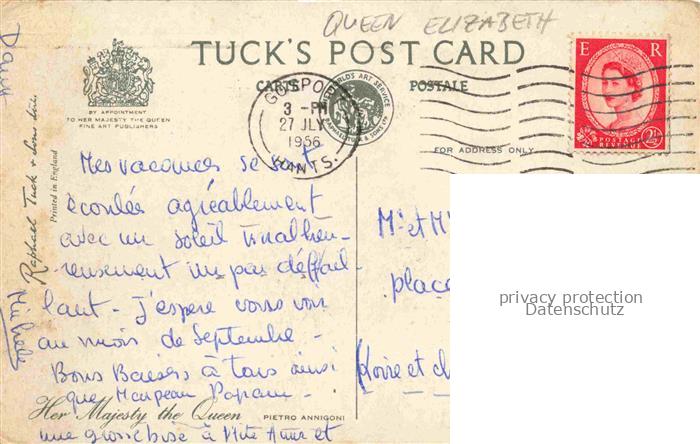 QUEEN ELIZABETH
TUCK'S POST CARD
CARTE POSTALE
BY APPOINTMENT
TO HER MAJESTY THE QUEEN
FINE ART PUBLISHERS
GOSPORT
3 - PM
27 JLY
1956
HANTS.
WORLD'S ART SERVICE
RAPHAEL TUCK & SONS LTD
E R
POSTAGE
REVENUE
2½
FOR ADDRESS ONLY
Raphael Tuck & Sons Ltd.
Printed in England
Mes vacances se sont
écoulées agréablement
avec un soleil malheu-
reusement un pas déffail-
lant - J'espère vous voir
au mois de Septembre -
Bons Baisers à tous ainsi
que
une grosse bise à
Her Majesty the Queen PIETRO ANNIGONI
Michèle
Mr et M
place
(Loire et
privacy protection
Datenschutz